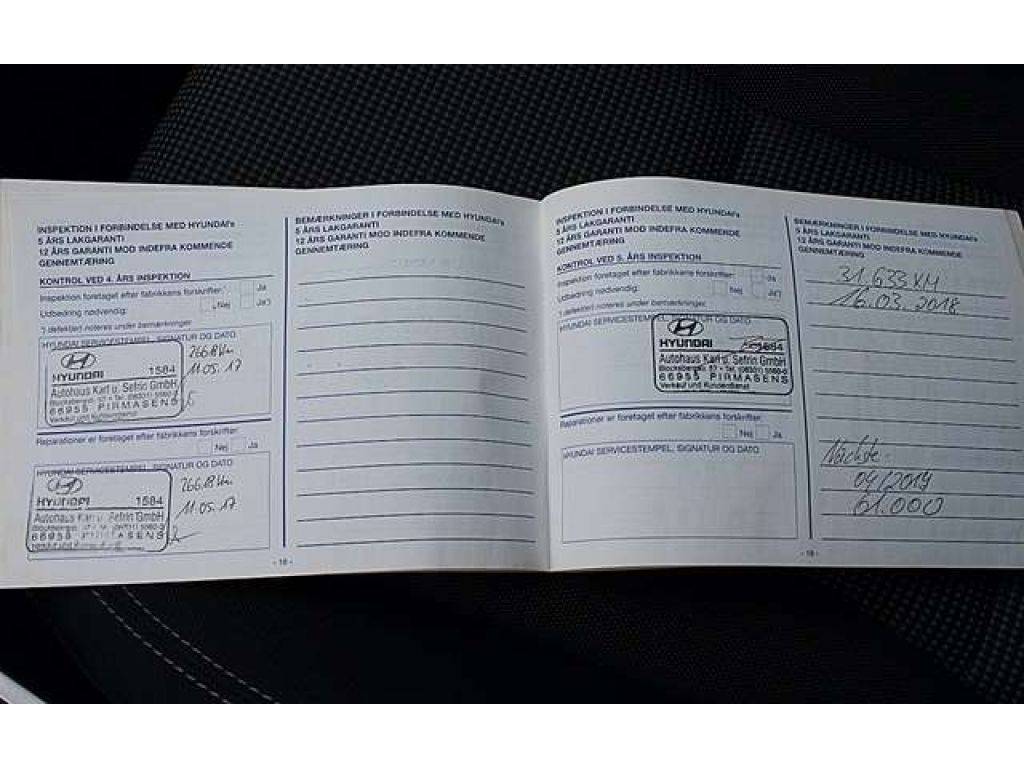 INSPEKTION I FORBINDELSE MED HYUNDAI's
5 ÅRS LAKGARANTI
12 ÅRS GARANTI MOD INDEFRA KOMMENDE
GENNEMTÆRING
KONTROL VED 4. ÅRS INSPEKTION
Inspektion foretaget efter fabrikkens forskrifter: Ja
Udbedring nødvendig: Nej Ja*)
*) defekt(er) noteres under bemærkninger
HYUNDAI SERVICESTEMPEL, SIGNATUR OG DATO
HYUNDAI 1584
Autohaus Karl u. Sefrin GmbH
66955 PIRMASENS
Verkauf und Kundendienst
26618 km
11.05.17
Reparationer er foretaget efter fabrikkens forskrifter:
Nej Ja
HYUNDAI SERVICESTEMPEL, SIGNATUR OG DATO
HYUNDAI 1584
Autohaus Karl u. Sefrin GmbH
66955 PIRMASENS
26618 km
11.05.17
BEMÆRKNINGER I FORBINDELSE MED HYUNDAI's
5 ÅRS LAKGARANTI
12 ÅRS GARANTI MOD INDEFRA KOMMENDE
GENNEMTÆRING
- 18 -
INSPEKTION I FORBINDELSE MED HYUNDAI's
5 ÅRS LAKGARANTI
12 ÅRS GARANTI MOD INDEFRA KOMMENDE
GENNEMTÆRING
KONTROL VED 5. ÅRS INSPEKTION
Inspektion foretaget efter fabrikkens forskrifter: Ja
Udbedring nødvendig: Nej Ja*)
*) defekt(er) noteres under bemærkninger
HYUNDAI SERVICESTEMPEL, SIGNATUR OG DATO
HYUNDAI 1584
Autohaus Karl u. Sefrin GmbH
Blocksbergstr. 57 • Tel. (06331) 5560-0
66955 PIRMASENS
Verkauf und Kundendienst
Reparationer er foretaget efter fabrikkens forskrifter:
Nej Ja
HYUNDAI SERVICESTEMPEL, SIGNATUR OG DATO
BEMÆRKNINGER I FORBINDELSE MED HYUNDAI's
5 ÅRS LAKGARANTI
12 ÅRS GARANTI MOD INDEFRA KOMMENDE
GENNEMTÆRING
31.633 KM
16.03.2018
Nächste
04/2019
61.000